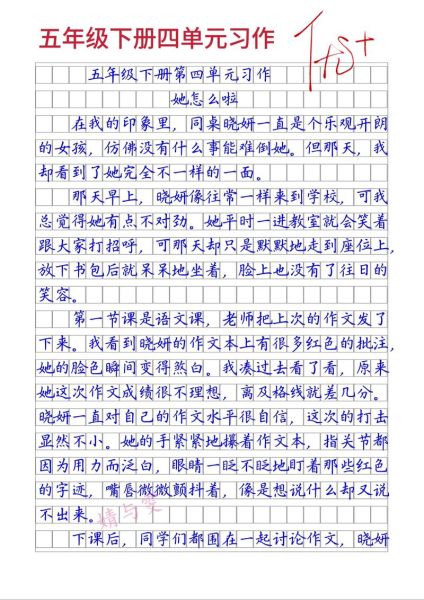 五年级下册四单元习作
优+
五年级下册第四单元习作
她怎么啦
在我的印象里，同桌晓妍一直是个乐观开朗
的女孩，仿佛没有什么事能难倒她。但那天，我
却看到了她完全不一样的一面。
那天早上，晓妍像往常一样来到学校，可我
总觉得她有点不对劲。她平时一进教室就会笑着
跟大家打招呼，可那天却只是默默地走到座位上，
放下书包后就呆呆地坐着，脸上也没有了往日的
笑容。
第一节课是语文课，老师把上次的作文发了
下来。我看到晓妍的作文本上有很多红色的批注，
她的脸色瞬间变得煞白。我凑过去看了看，原来
她这次作文成绩很不理想，离及格线就差几分。
晓妍一直对自己的作文水平很自信，这次的打击
显然不小。她的手紧紧地攥着作文本，指关节都
因为用力而泛白，眼睛一眨不眨地盯着那些红色
的字迹，嘴唇微微颤抖着，像是想说什么却又说
不出来。
下课后，同学们都围在一起讨论作文，晓妍